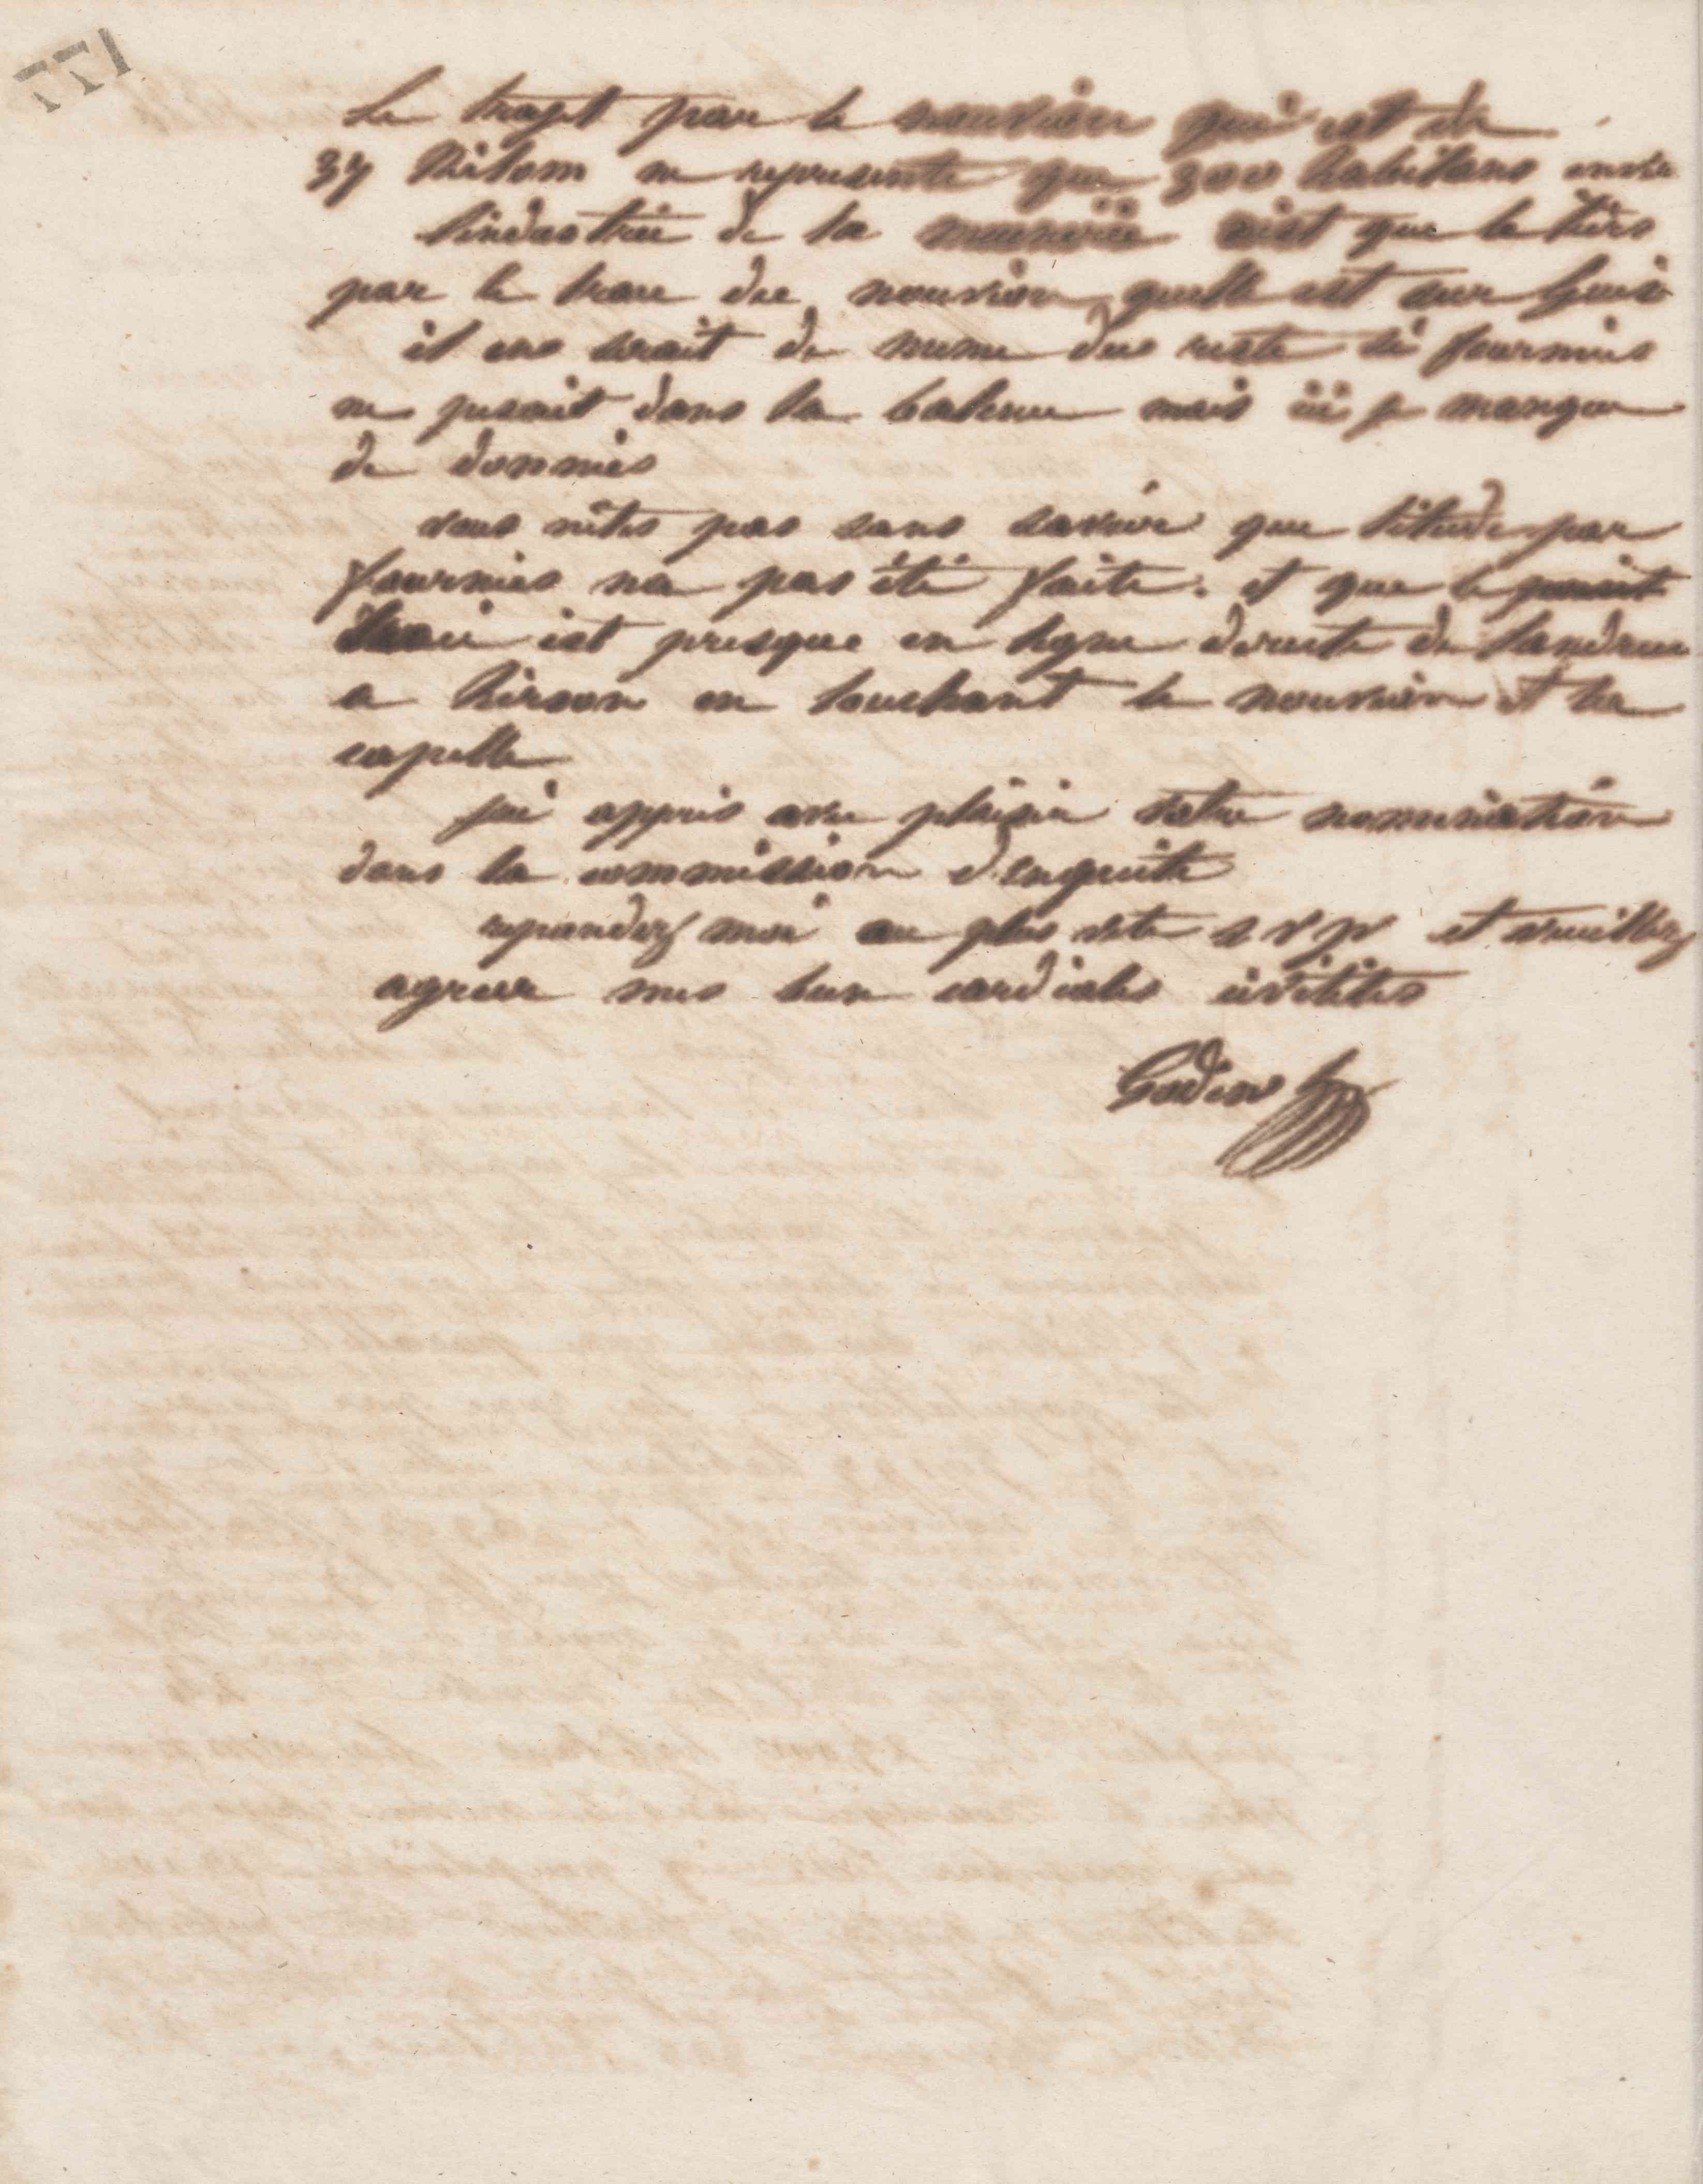 177
Le trajet par le nouvion qui est de
37 kilom ne represente que 300 habitans
lindustrie de la que le tiers
par le trace du nouvion quelle est sur Guise
il en serait de meme du reste si fourmies
ne pesait dans la balance mais ici je manque
de donnees
vous nêtes pas sans savoir que létude par
fourmies na pas été faite. et que le
est presque en ligne directe de landrecies
a hirson en touchant le nouvion et la
capelle
jai appris avec plaisir votre nomination
dans la commission denquête
repondez moi au plus vite s v p et veuillez
agreer mes bien cordiales civilités
Godin